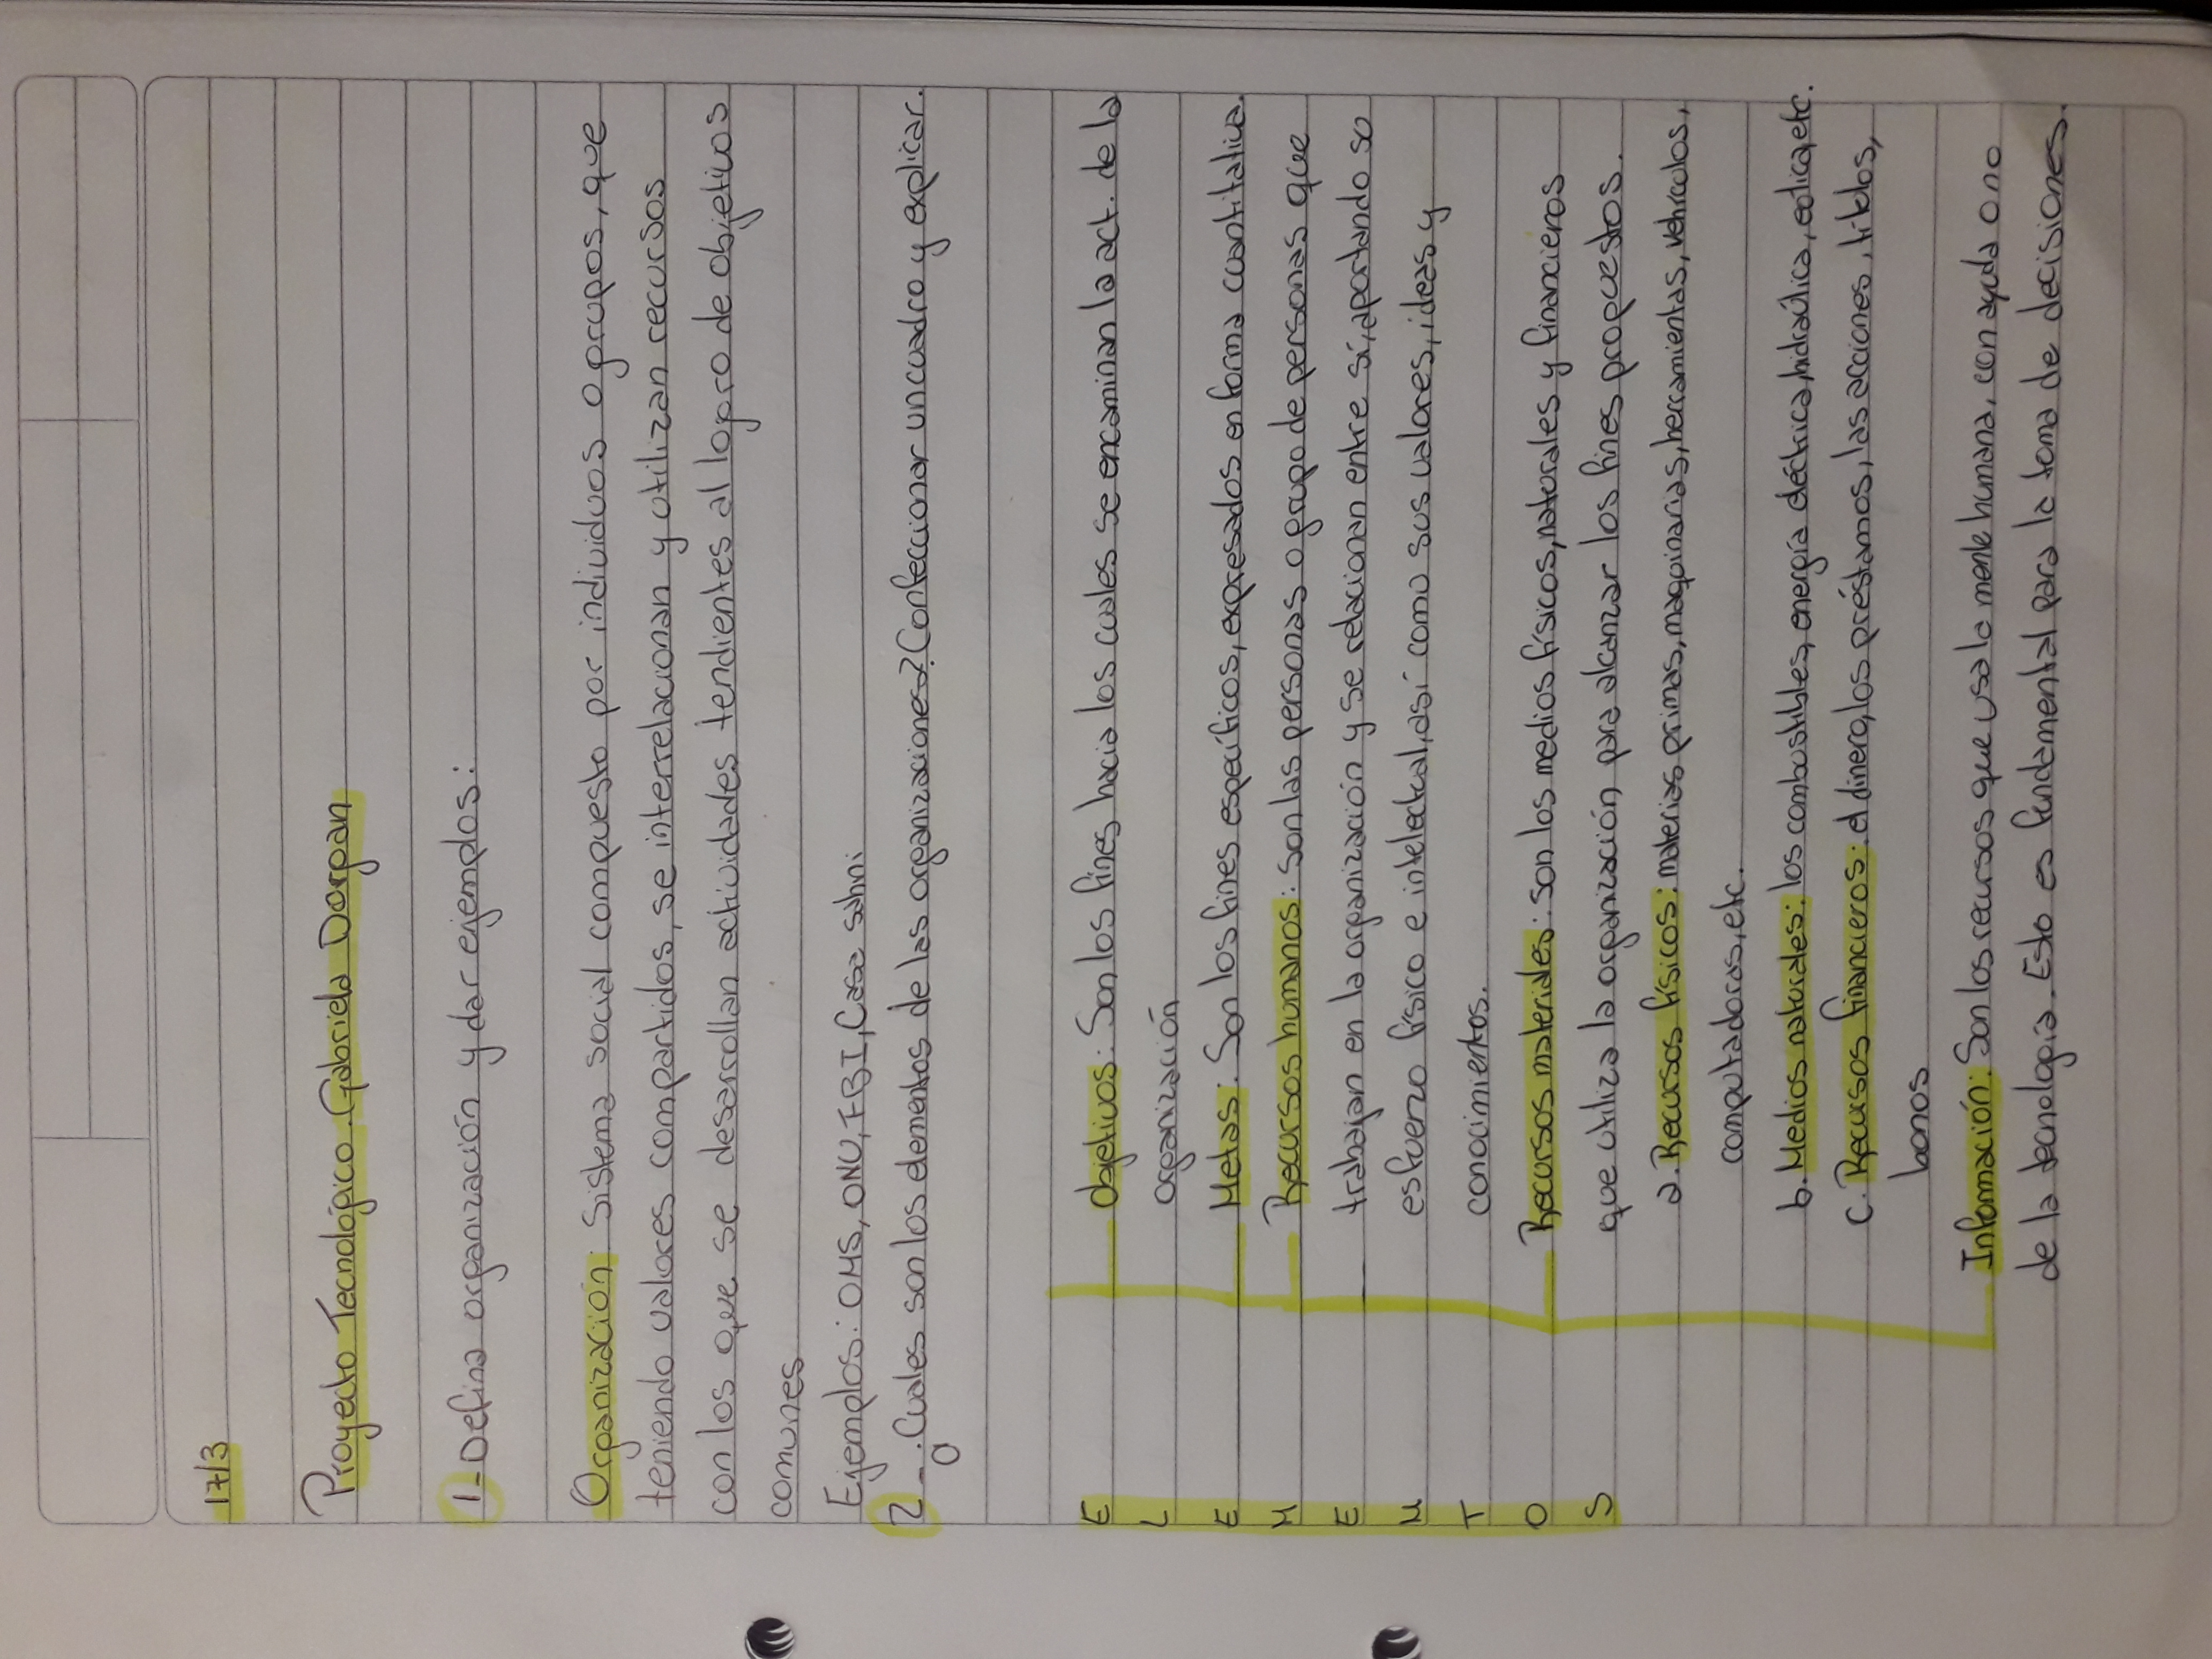 17/3
Proyecto Tecnológico. Gabriela Dorgan
1-Defina organización y dar ejemplos:
Organización: Sistema social compuesto por individuos o grupos, que
teniendo valores compartidos, se interrelacionan y utilizan recursos
con los que se desarrollan actividades tendientes al logro de objetivos
comunes
Ejemplos: OMS, ONU, FBI, Casa sahni
2-¿Cuales son los elementos de las organizaciones? Confeccionar un cuadro y explicar.
ELEMENTOS
Objetivos: Son los fines hacia los cuales se encaminan la act. de la
organización
Metas: Son los fines específicos, expresados en forma cuantitativa.
Recursos humanos: son las personas o grupo de personas que
trabajan en la organización y se relacionan entre sí, aportando su
esfuerzo físico e intelectual, así como sus valores, ideas y
conocimientos.
Recursos materiales: son los medios físicos, naturales y financieros
que utiliza la organización para alcanzar los fines propuestos.
a. Recursos físicos: materias primas, maquinarias, herramientas, vehículos,
computadoras, etc.
b. Medios naturales: los combustibles, energía eléctrica, hidraúlica, eolica, etc.
c. Recursos financieros: el dinero, los préstamos, las acciones, titulos,
bonos
Información: Son los recursos que usa la mente humana, con ayuda o no
de la tecnologia. Esto es fundamental para la toma de decisiones.